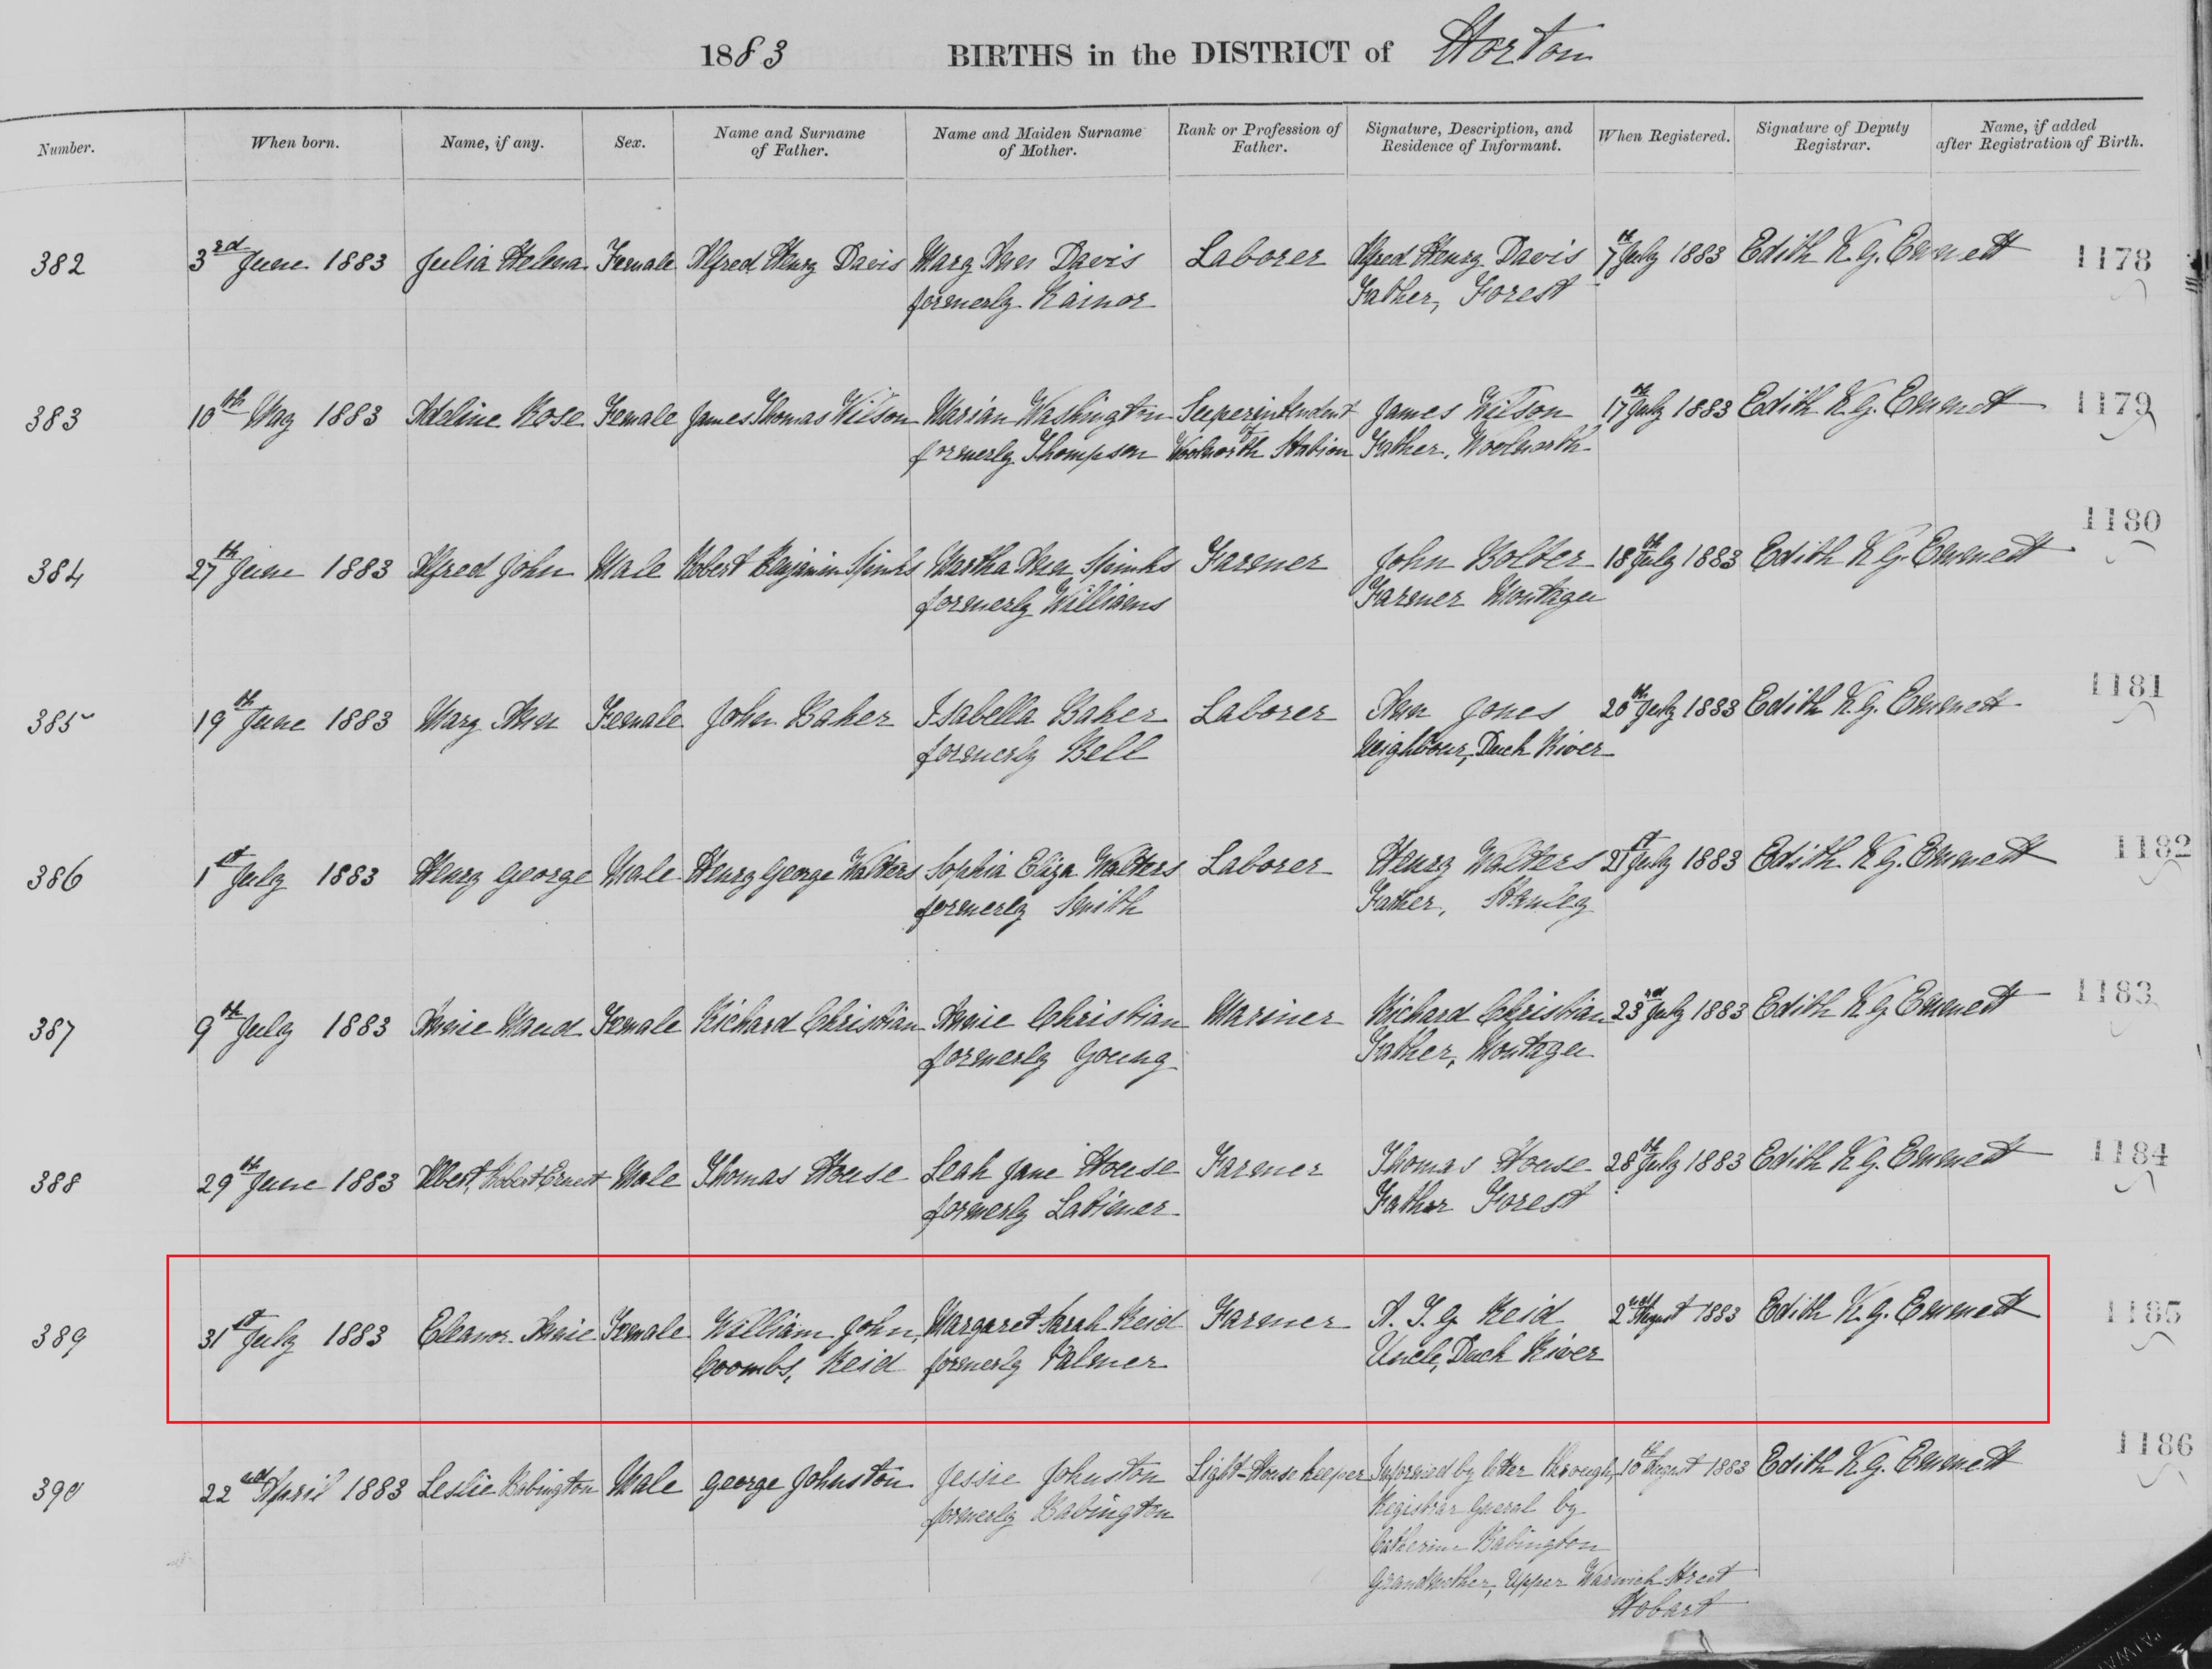 1883 BIRTHS in the DISTRICT of Horton
Number. When born. Name, if any. Sex. Name and Surname of Father. Name and Maiden Surname of Mother. Rank or Profession of Father. Signature, Description, and Residence of Informant. When Registered. Signature of Deputy Registrar. Name, if added after Registration of Birth.
382 3rd June 1883 Julia Helena Female Alfred Henry Davis Mary Ann Davis Laborer Alfred Henry Davis 7th July 1883 Edith K. G. Emmett 1178
formerly Rainor Father, Forest
383 10th May 1883 Adeline Rose Female James Thomas Wilson Marian Washington Superintendent James Wilson 17th July 1883 Edith K. G. Emmett 1179
formerly Thompson of Woolnorth Station Father, Woolnorth
384 27th June 1883 Alfred John Male Robert Benjamin Spinks Martha Ann Spinks Farmer John Bolter 18th July 1883 Edith K G. Emmett 1180
formerly Williams Farmer Montagu
385 19th June 1883 Mary Ann Female John Baker Isabella Baker Laborer Ann Jones 20th July 1883 Edith K G. Emmett 1181
formerly Bell Neighbour, Duck River
386 1st July 1883 Henry George Male Henry George Walters Sophia Eliza Walters Laborer Henry Walters 21st July 1883 Edith K G. Emmett 1182
formerly Smith Father, Stanley
387 9th July 1883 Annie Maud Female Richard Christian Annie Christian Mariner Richard Christian 23rd July 1883 Edith K G Emmett 1183
formerly Young Father, Montagu
388 29th June 1883 Albert, Robert Ernest Male Thomas House Leah Jane House Farmer Thomas House 28th July 1883 Edith K G. Emmett 1184
formerly Latimer Father Forest
389 31st July 1883 Eleanor Annie Female William John, Margaret Sarah Reid Farmer A. T. G. Reid 2nd August 1883 Edith K. G. Emmett 1185
Coombs, Reid formerly Palmer Uncle, Duck River
390 22nd April 1883 Leslie Babington Male George Johnston Jessie Johnston Light-House keeper Informed by letter through 10th August 1883 Edith K G. Emmett 1186
formerly Babington Registrar General by
Catherine Babington
Grandmother, Upper Warwick Street
Hobart